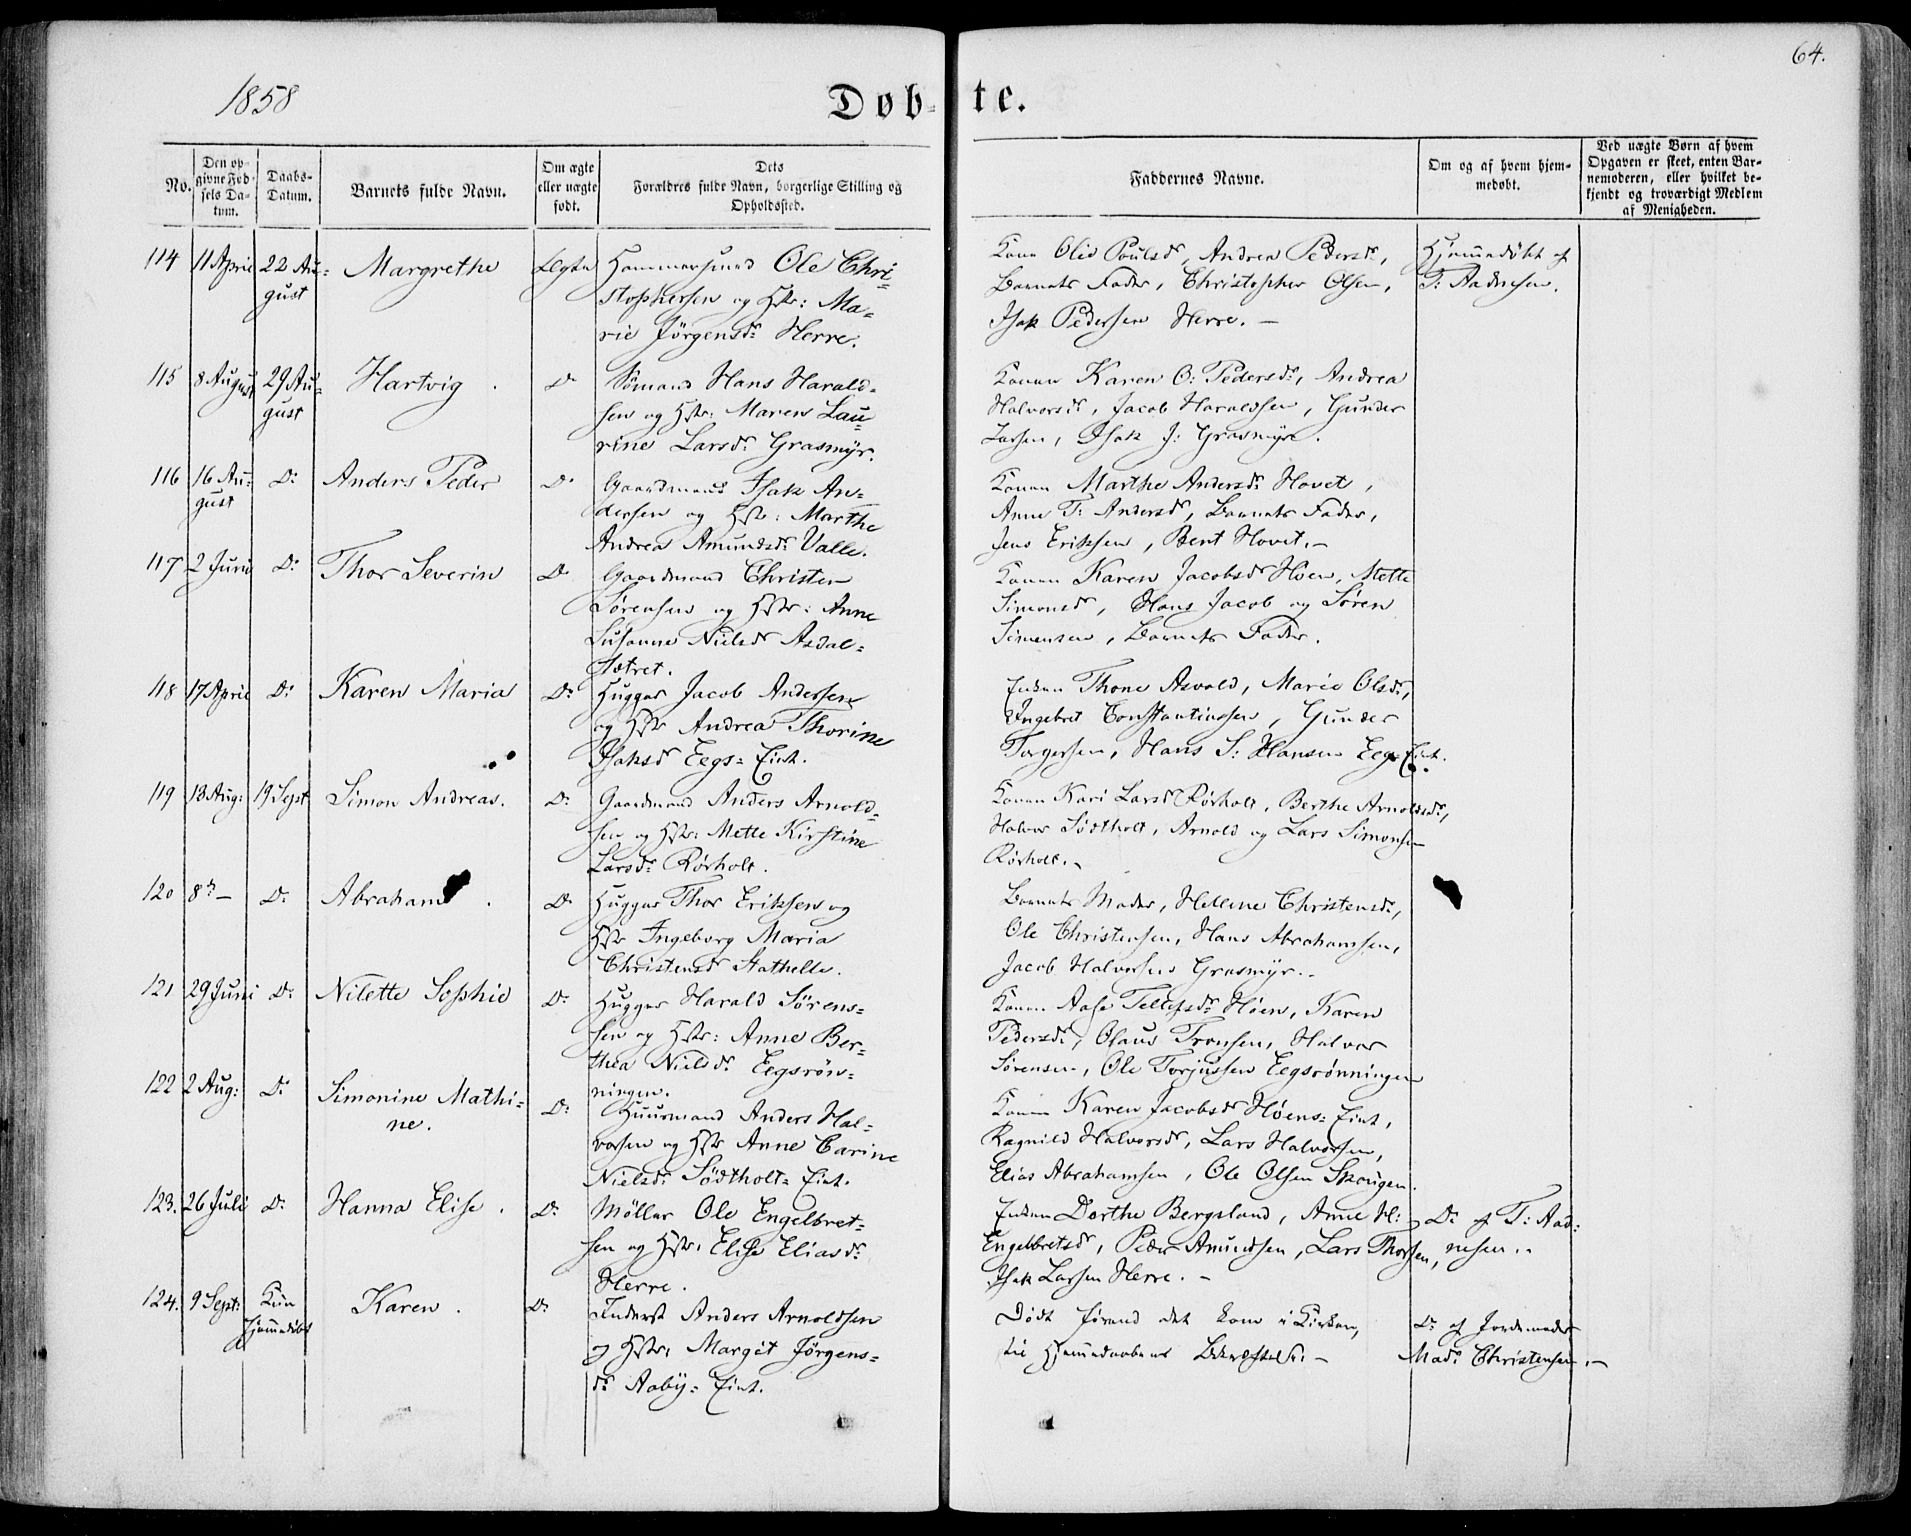 64.
1858
Døb- te.
No.
Den op-
givne Fød-
sels Da-
tum.
Daabs-
Datum.
Barnets fulde Navn.
Om ægte
eller uægte
født.
Dets
Forældres fulde Navn, borgerlige Stilling og
Opholdssted.
Faddernes Navne.
Om og af hvem hjem-
medøbt.
Ved uægte Børn af hvem
Opgaven er skeet, enten Bar-
nemoderen, eller hvilket be-
kjendt og troværdigt Medlem
af Menigheden.
114 11 April 22 Au-
gust
Margrethe
Ægte
Hammersmed Ole Chri-
stophersen og Hstr: Ma-
rie Jørgensdr Herre.
Kone Olid Poulsdr, Andrea Pedersdr,
Barnets Fader, Christopher Olsen,
Isak Pedersen Herre. -
Hjemmedøbt af
T: Aadnesen.
115 8 August 29 Au-
gust
Hartvig.
Do
Sømand Hans Harald-
sen og Hstr: Maren Lau-
rine Larsdr Grasmyr.
Konen Karen O: Pedersdr, Andrea
Halvorsdr, Jacob Haraldsen, Gunder
Larsen, Isak J: Grasmyr.
116 16 Au-
gust
Do
Anders Peder
Do
Gaardmand Isak An-
dersen og Hstr: Marthe
Andrea Amundsdr Valle.
Konen Marthe Andersdr Hovet,
Anne T: Andersdr, Barnets Fader,
Jens Eriksen, Bent Hovet. -
117 2 Juni Do
Thor Severin
Do
Gaardmand Christen
Sørensen og Hstr: Anne
Susanne Nielsdr Asdal-
sætret.
Konen Karen Jacobsdr Høen, Mette
Simonsdr, Hans Jacob og Søren
Simonsen, Barnets Fader.
118 17 April Do
Karen Maria
Do
Hugger Jacob Andersen
og Hstr Andrea Thorine
Isaksdr Eegs-Eint.
Enken Thone Asvold, Marie Olsdr,
Ingebret Constantinsen, Gunder
Torgersen, Hans S: Hansen Eegs-Eint.
119 13 Aug: 19 Sept
Simon Andreas.
Do
Gaardmand Anders Arnold-
sen og Hstr: Mette Kirstine
Larsdr Rørholt.
Konen Kari Larsdr Rørholt, Berthe Arnoldsdr,
Halvor Södtholt, Arnold og Lars Simonsen
Rørholt. -
120 8de - Do
Abraham.
Do
Hugger Thor Eriksen og
Hstr Ingeborg Maria
Christensdr Stathelle.
Barnets Moder, Hellene Christensdr,
Ole Christensen, Hans Abrahamsen,
Jacob Halvorsen Grasmyr. -
121 29 Juni Do
Nilette Sophie
Do
Hugger Harald Sørens-
sen og Hstr: Anne Ber-
thea Nielsdr Eegsrøn-
ningen.
Konen Aase Tellefsdr Høen, Karen
Pedersdr, Olaus Tronsen, Halvor
Sørensen, Ole Torjussen Eegsrønningen
122 2 Aug: Do
Simonine Mathi-
ne.
Do
Huusmand Anders Hal-
vorsen og Hstr Anne Carine
Nielsdr Södtholt-Eint.
Konen Karen Jacobsdr Høens-Eint,
Ragnild Halvorsdr, Lars Halvorsen,
Elias Abrahamsen, Ole Olsen Skougen.
123. 26 Juli Do
Hanna Elise.
Do
Møller Ole Engelbret-
sen og Hstr: Elise Eliasdr
Herre.
Enken Dorthe Bergsland, Anne H:
Engelbretsdr, Peder Amundsen, Lars Thorsen,
Isak Larsen Herre. -
Do af T: Aad-
nesen.
124. 9 Sept: Kun
hjemmedøbt
Karen.
Do
Inderst Anders Arnoldsen
og Hstr: Margit Jörgens-
dr Aaby-Eint.
Dødt førend det kom i Kirken,
til Hjemmedaabens Bekræftelse. -
Do af Jordemoder
Mad: Christensen. -